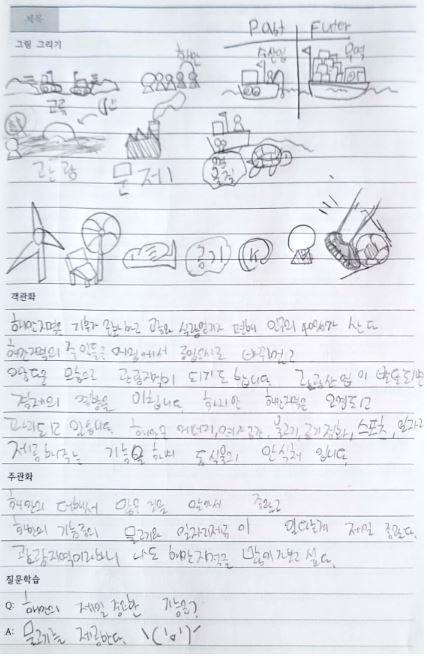 제목
그림 그리기
Past Futer
해안
수산업 무역
교류
관광 문제
오염 물질
공기
객관화
해안지역은 기후가 온화하고 교통과 식량얻기가 편해 인구의 40%가 산다
해안지역의 주 산업은 어업에서 공업도시로 바뀌었고
아름다움으로 관광지역이 되기도 합니다. 관광산업이 발달되면
경제에 영향을 미칩니다. 하지만 해안지역은 오염되고
파괴되고 있습니다. 해안은 에너지, 여가공간, 물고기, 공기정화, 스포츠, 일자리
제공해주는 기능을 하며 동식물의 안식처 입니다.
주관화
해안에 대해서 많은 것을 알아서 좋았고
해안의 기능중의 물고기와 일자리제공이 제일 중요하다.
관광지역이라하니 나도 해안지역을 많이 가보고 싶다.
질문학습
Q: 해안의 제일 중요한 기능은?
A: 물고기를 제공한다.